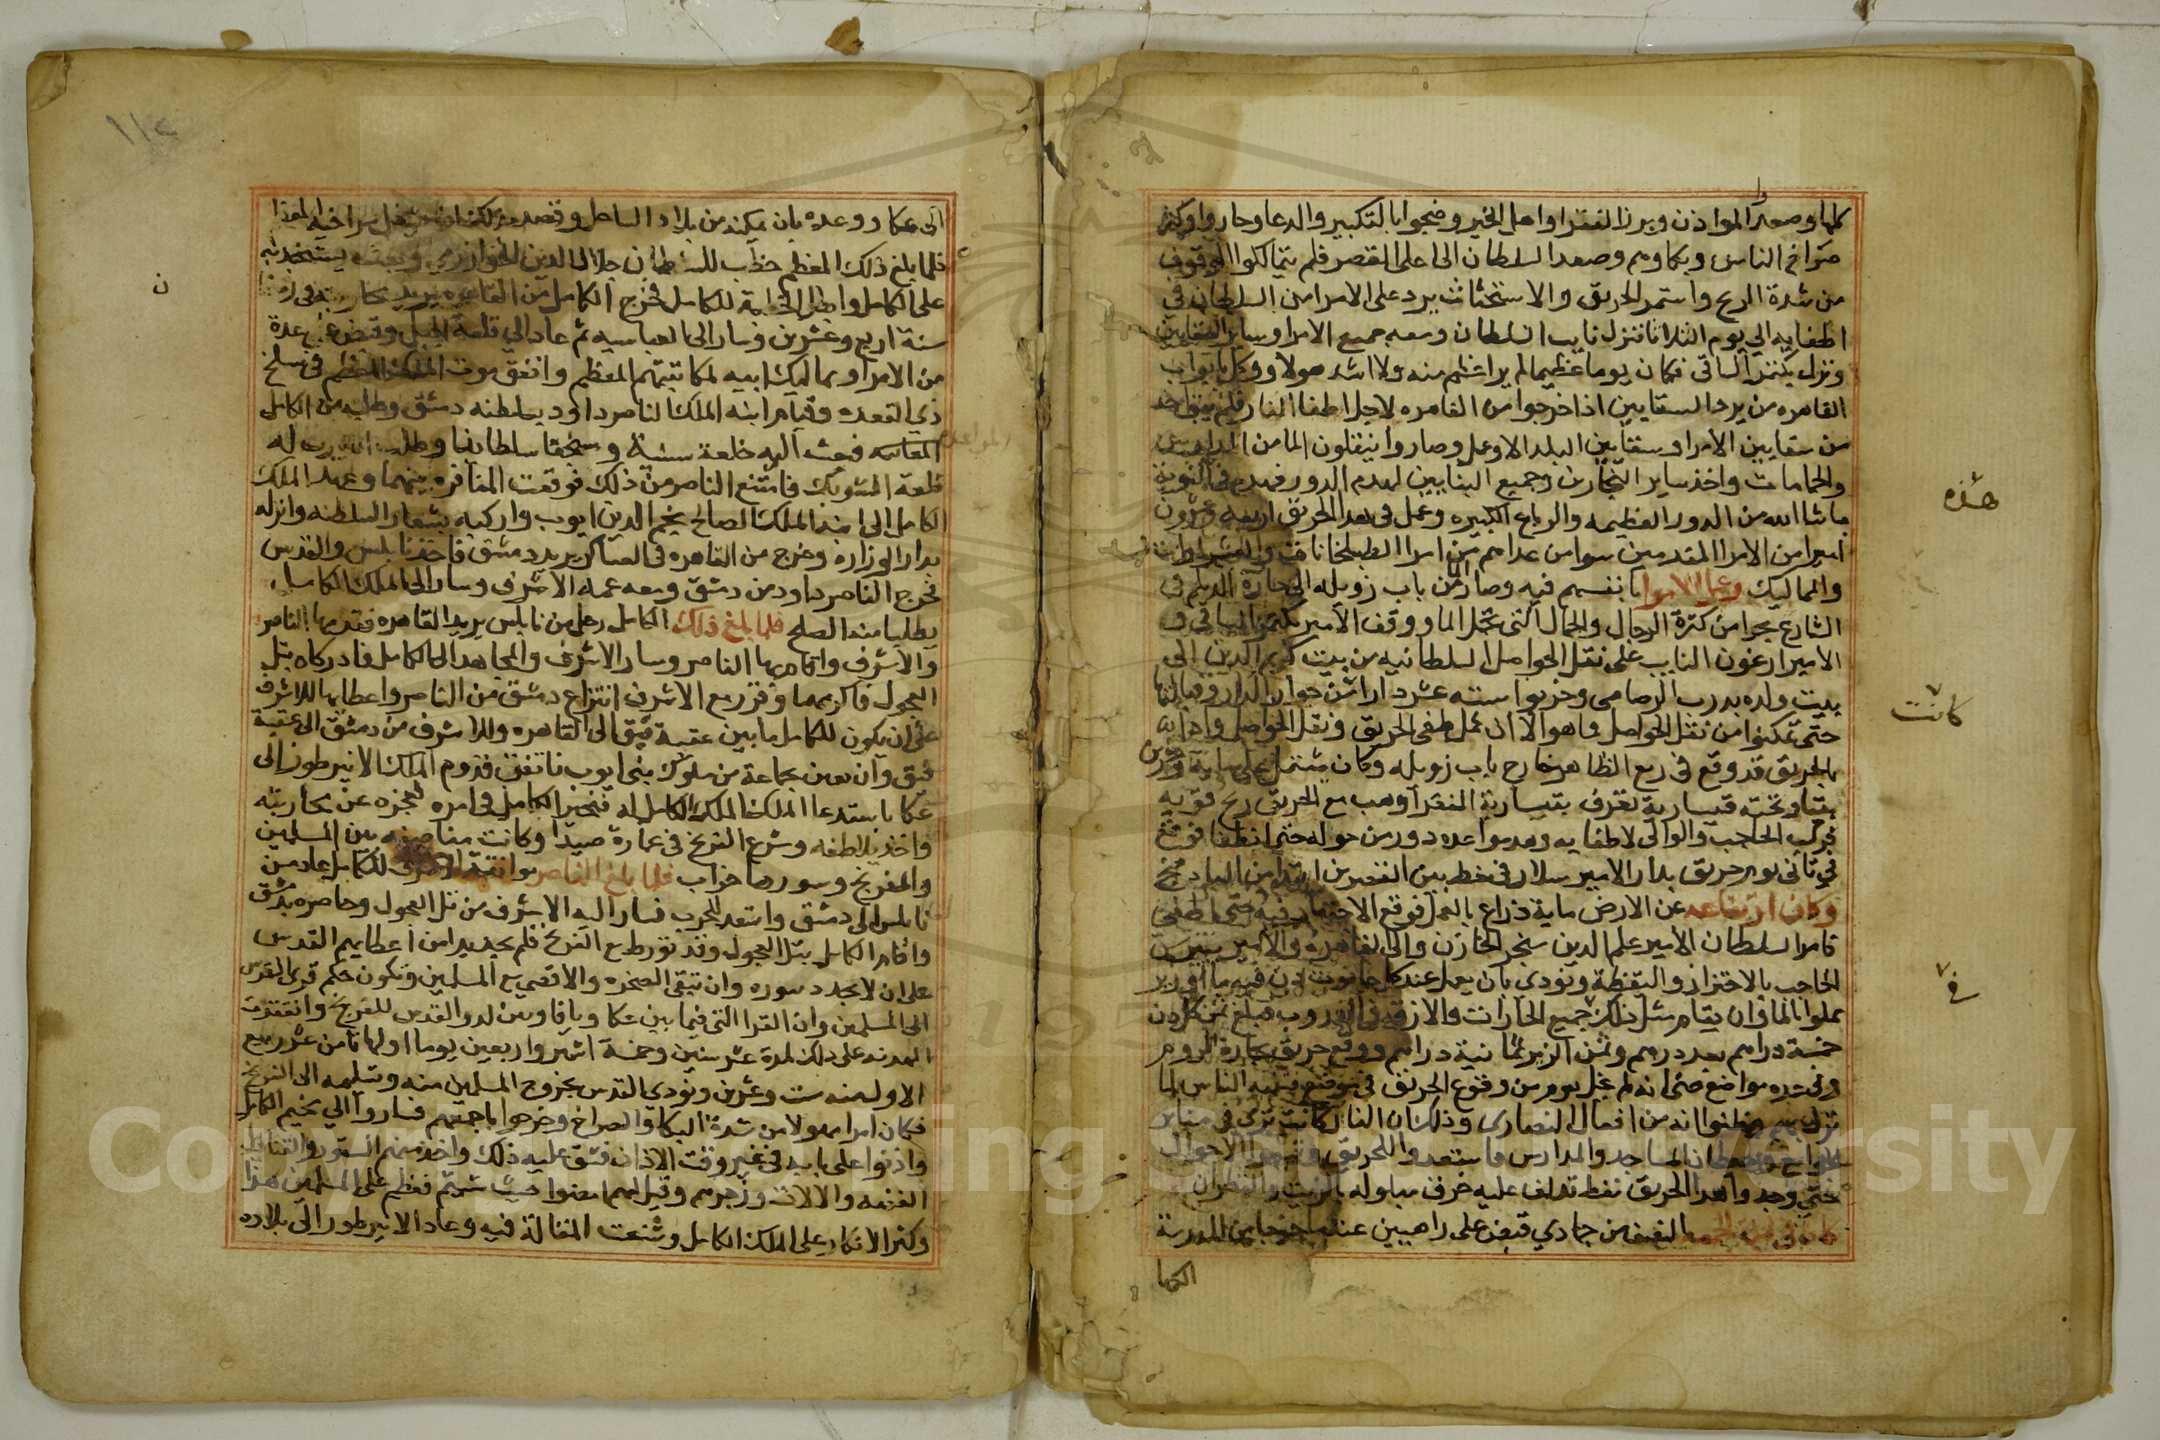 كلها وصعدوا المواذن وبرز الفقرا واهل الخير وضجوا بالتكبير والدعا وجاروا وكثر
صراخ الناس وبكاوهم وصعد السلطان الى اعلى القصر فلم يتمالك الوقوف
من شدة الريح واستمر الحريق والاستحثاث يرد على الامرا من السلطان في
اطفايه الي يوم الثلاثا فنزل نايب السلطان ومعه جميع الامرا وساير السقايين
ونزل بكتمر الساقي فكان يوما عظيما لم ير اعظم منه ولا اشد هولا ووكل بابواب
القاهره من يرد السقايين اذا خرجوا من القاهره لاجل اطفا النار فلم يبق احد
من سقايين الامرا وسقايين البلد الا وعمل وصاروا ينقلون الما من المدارس
والحمامات واخذ ساير النجارين وجميع البنايين لهدم الدور فهدم في النوبة
ما شا الله من الدور العظيمه والرباع الكبيره وعمل في هذا الحريق اربعه وعشرون
اميرا من الامرا المقدمين سوا من عداهم من امرا الطبلخانات والعشراوات
والمماليك وعمل الامرا بانفسهم فيه وصار الما من باب زويله الى حارة الديلم في
الشارع بحرا من كثرة الرجال والجمال التي تحمل الما ووقف الامير بكتمر الساقي و
الامير ارغون النايب على نقل الحواصل السلطانيه من بيت كريم الدين الى
بيت ولده بدرب الرصاصي وخربوا سته عشر دارا من جوار الدار وقبالتها
حتى تمكنوا من نقل الحواصل وما هو الا ان كمل طفي الحريق ونقل الحواصل واذا
بالحريق قد وقع في ربع الظاهر خارج باب زويله وكان يشتمل على ماية وعشرين
بيتا وتحته قيسارية تعرف بقيسارية الفقرا وهب مع الحريق ريح قويه
فركب الحاجب والوالي لاطفايه وهدموا عده دور من حوله حتى انطفا فوقع
في ثاني يوم حريق بدار الامير سلار في خط بين القصرين ابتدا من البادهنج
وكان ارتفاعه عن الارض ماية ذراع بالعمل فوقع الاجتهاد فيه حتى اطفي
فامر السلطان الامير علم الدين سنجر الخازن والى القاهرة والامير بيبرس
الحاجب بالاحتراز والتيقظة ونودي بان يعمل عند كل حانوت دن فيه ما او زير
مملوا بالما وان يقام مثل ذلك في جميع الحارات والازقه والدروب فبلغ ثمن كل دن
خمسة دراهم بعد درهم وثمن الزير ثمانية دراهم ووقع حريق بحارة الروم
وفي عده مواضع حتى انه لم يخل يوم من وقوع الحريق في موضع فتنبه الناس لما
نزل بهم وظنوا انه من افعال النصارى وذلك ان النار كانت ترى في منابر
الجوامع وحيطان المساجد والمدارس فاستعدوا للحريق
حتى وجدوا هذا الحريق نفط قد لف عليه خرق مبلوله بالزيت والقطران
فلما كان ليلة الجمعه النصف من جمادي قبض على راهبين عندما خرجا من المدرسة
الكها
هذه
كانت
في
١١٢
الى عكا ووعده بان يمكنه من بلاد الساحل وقصد بذلك ان يشغل سر اخيه المعظم
فلما بلغ ذلك المعظم خطب للسلطان جلال الدين الخوارزمي وبعث يستنجد به
على الكامل وابطل الخطبة للكامل فخرج الكامل من القاهره يريد محاربته في رمضان
سنة اربع وعشرين وسار الى العباسيه ثم عاد الي قلعة الجبل وقبض على عدة
من الامرا ومماليك ابيه لمكاتبتهم المعظم واتفق موت الملك المعظم في سلخ
ذي القعده وقيام ابنه الملك الناصر داود بسلطنه دمشق وطلبه من الكامل
الموادعه
فبعث اليه خلعة سنية وسنجقا سلطانيا وطلب ان ينزل له
قلعة الشوبك فامتنع الناصر من ذلك فوقعت المنافره بينهما وعهد الملك
الكامل الى ابنه الملك الصالح نجم الدين ايوب واركبه بشعار السلطنه وانزله
بدار الوزارة وخرج من القاهره في العساكر يريد دمشق فاخذ نابلس والقدس
فخرج الناصر داود من دمشق ومعه عمه الاشرف وسار الى الملك الكامل
يطلبا منه الصلح فلما بلغ ذلك الكامل رحل من نابلس يريد القاهره فقدمها الناصر
والاشرف واقام بها الناصر وسار الاشرف والمجاهد الى الكامل فادركاه بتل
العجول فاكرمهما وقرر مع الاشرف انتزاع دمشق من الناصر واعطايها للاشرف
على ان يكون للكامل ما بين عقبة فيق الى القاهره وللاشرف من دمشق الى عقبة
فيق وان يعين بجماعة من ملوك بني ايوب فاتفق قدوم الملك الانبرطور الى
عكا باستدعا الملك الكامل له فتحير الكامل في امره لعجزه عن محاربته
واخذ يلاطفه وشرع الفرنج في عمارة صيدا وكانت مناصفه بين المسلمين
والفرنج وسورها خراب فلما بلغ الناصر موافقة الاشرف للكامل عاد من
نابلس الى دمشق واستعد للحرب فسار اليه الاشرف من تل العجول وحاصره بدمشق
واقام الكامل بتل العجول وقد تورط مع الفرنج فلم يجد بدا من اعطايهم القدس
على ان لا يجدد سوره وان تبقى الصخره والاقصى مع المسلمين ويكون حكم قرى القدس
الى المسلمين وان القرا التى فيما بين عكا ويافا وبين لد والقدس للفرنج وانعقدت
الهدنه على ذلك لمدة عشر سنين وخمسة اشهر واربعين يوما اولها ثامن عشر ربيع
الاول سنه ست وعشرين ونودي القدس بخروج المسلمين منه وتسليمه الى الفرنج
فكان امرا مهولا من شدة البكا والصراخ وخرجوا باجمعهم فساروا الي مخيم الكامل
واذنوا على بابه في غير وقت الاذان فشق عليه ذلك واخذ منهم الستور والقناديل
الفضه والالات وزجرهم وقيل لهم امضوا حيث شيتم فعظم على المسلمين هذا
وكثر الانكار على الملك الكامل وشنعت المقالة فيه وعاد الانبرطور الى بلاده
ن